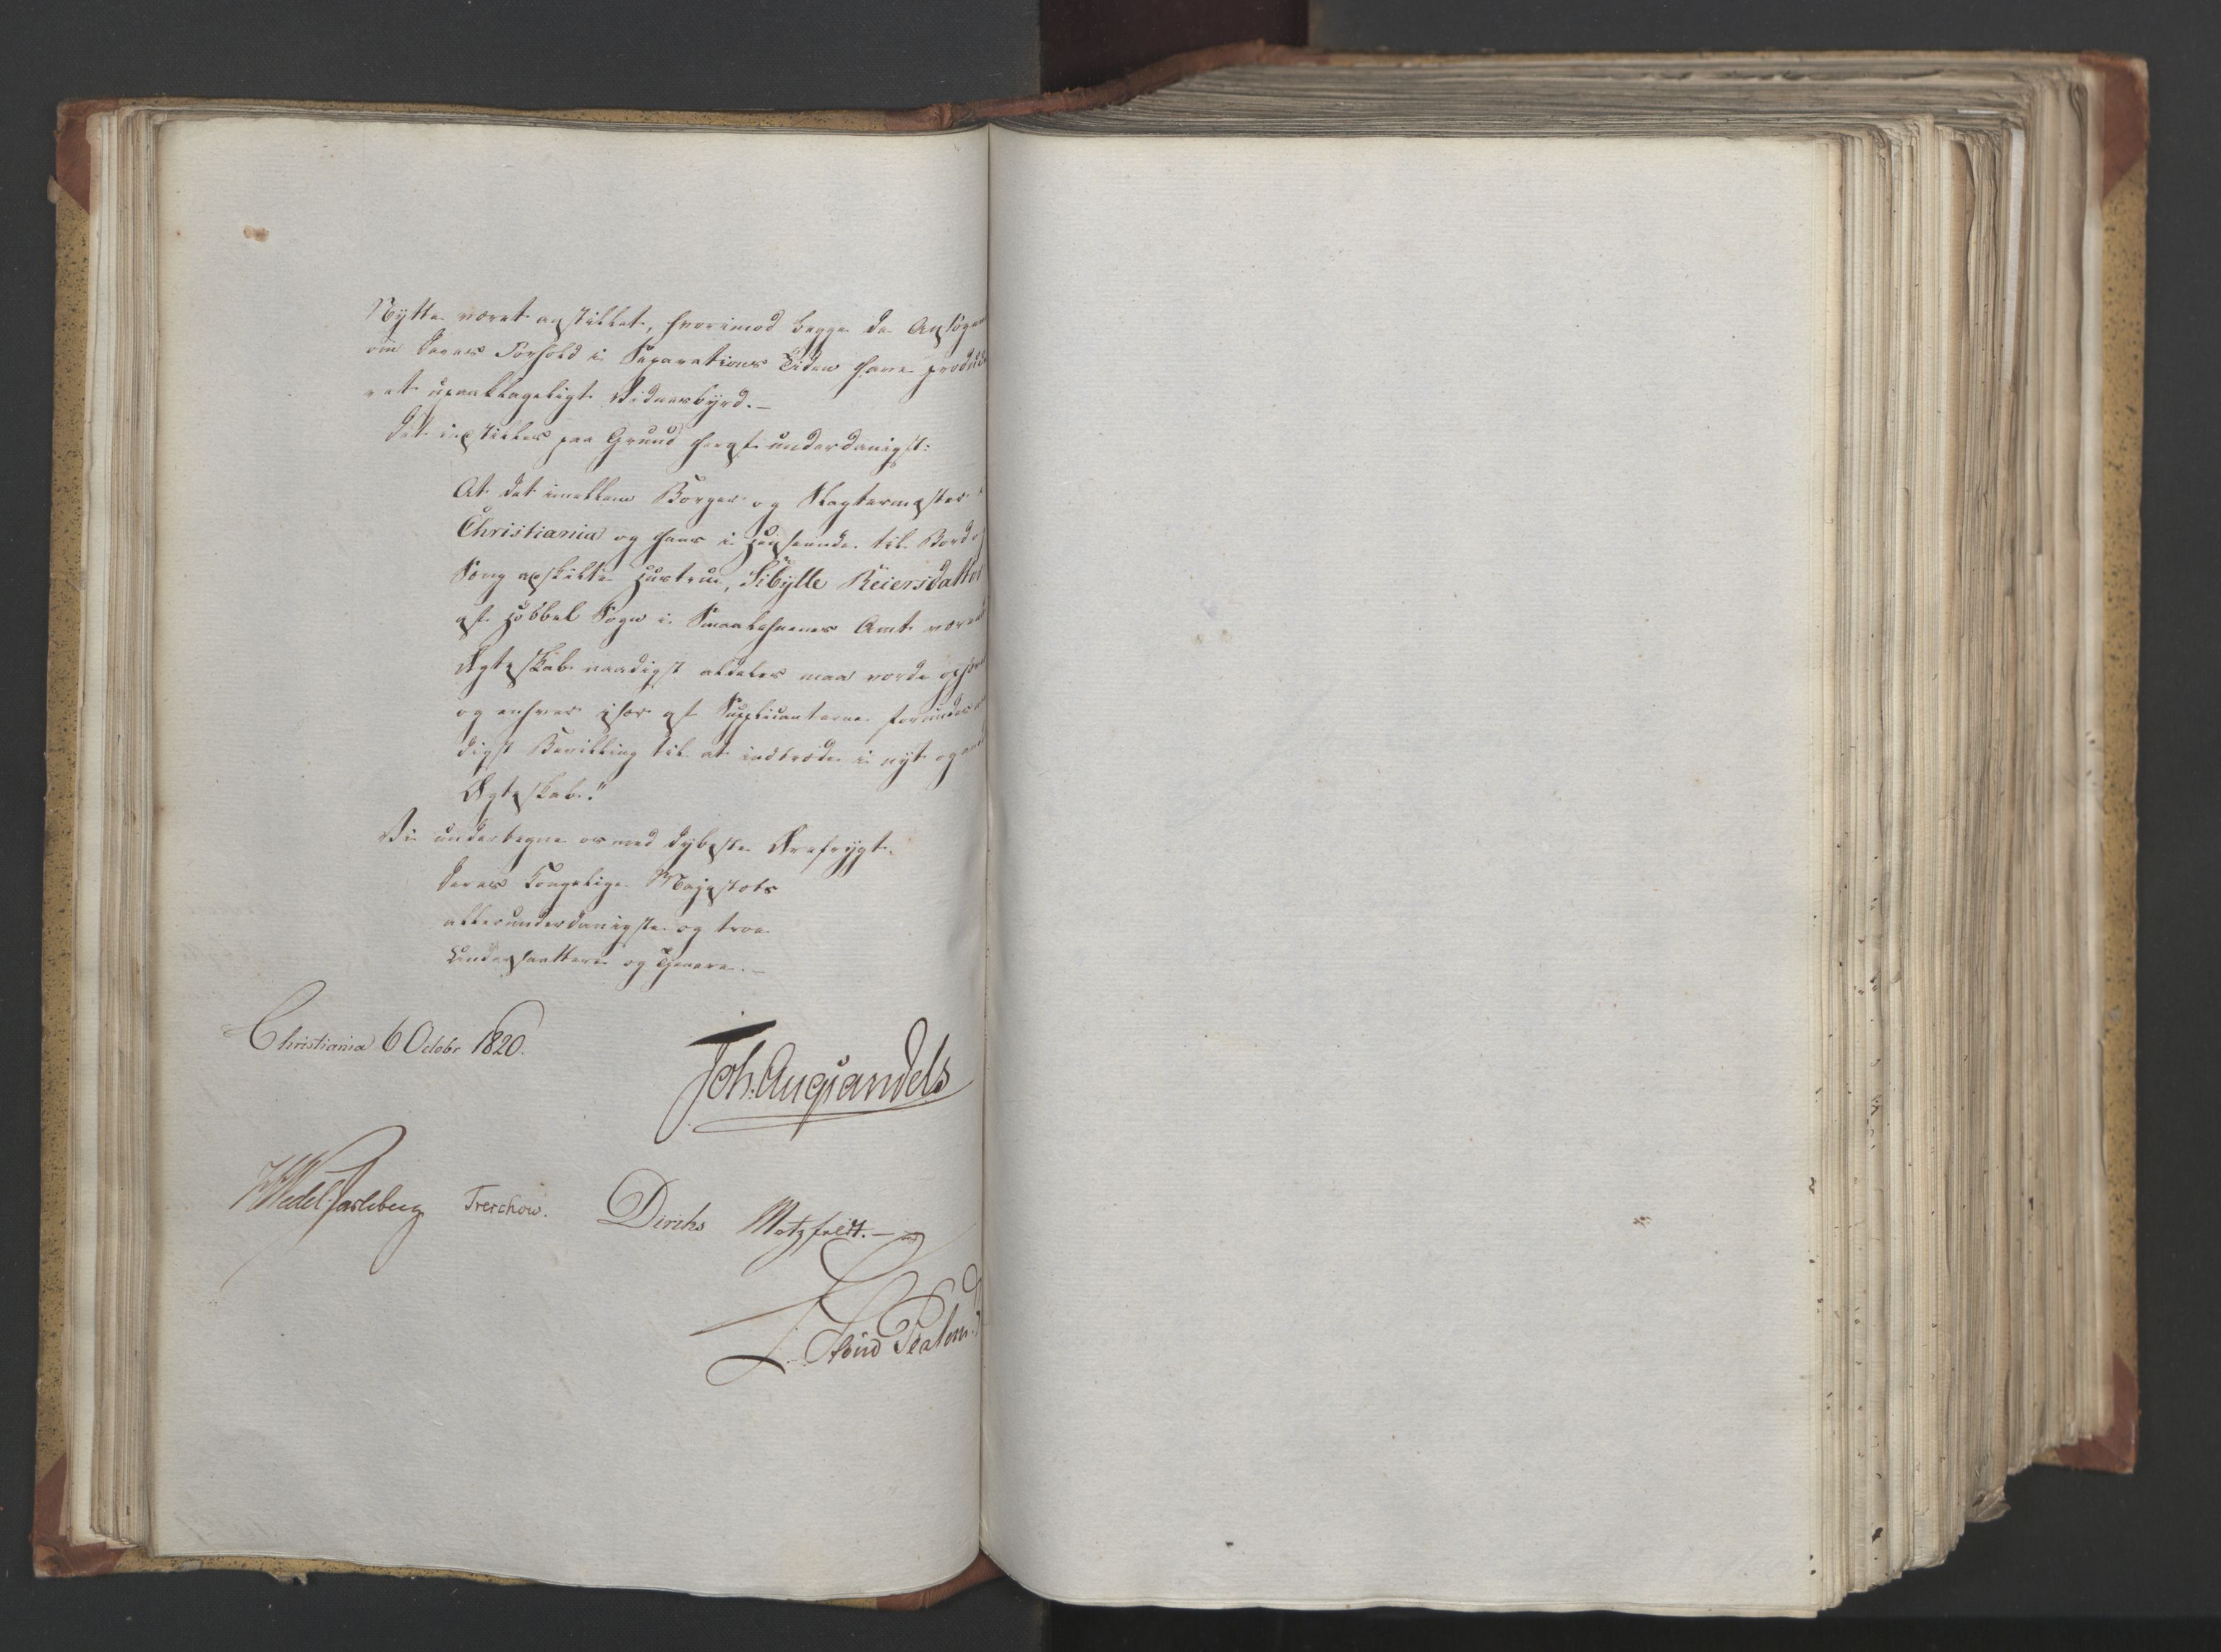 Nytte været anstillet, hvorimod begge de Ansøgende
om deres Forhold i Separations Tiden have produce
ret upaaklageligt Vidnesbyrd.—
Det indstilles paa Grund heraf underdanigst:
At det imellem Borger og Slagtermester i
Christiania og hans i Henseende til Bord og
Seng adskilte Hustrue, Sibylle Reiersdatter
af Hobbel Sogn i Smaalehnenes Amt værende
Ægteskab naadigst aldeles maa vorde ophævet
og enhver især af Supplicanterne forundes
digst Bevilling til at indtræde i nyt og andet
Ægteskab."
Vi undertegne os med dybeste Ærefrygt.
Deres Kongelige Majestæts
allerunderdanigste og troe
Undersaatter og Tjenere.—
Christiania 6 Octobr 1820.
Joh. Aug Sandels
HWedel Jarlsberg Treschow. Diriks Motzfeldt.—